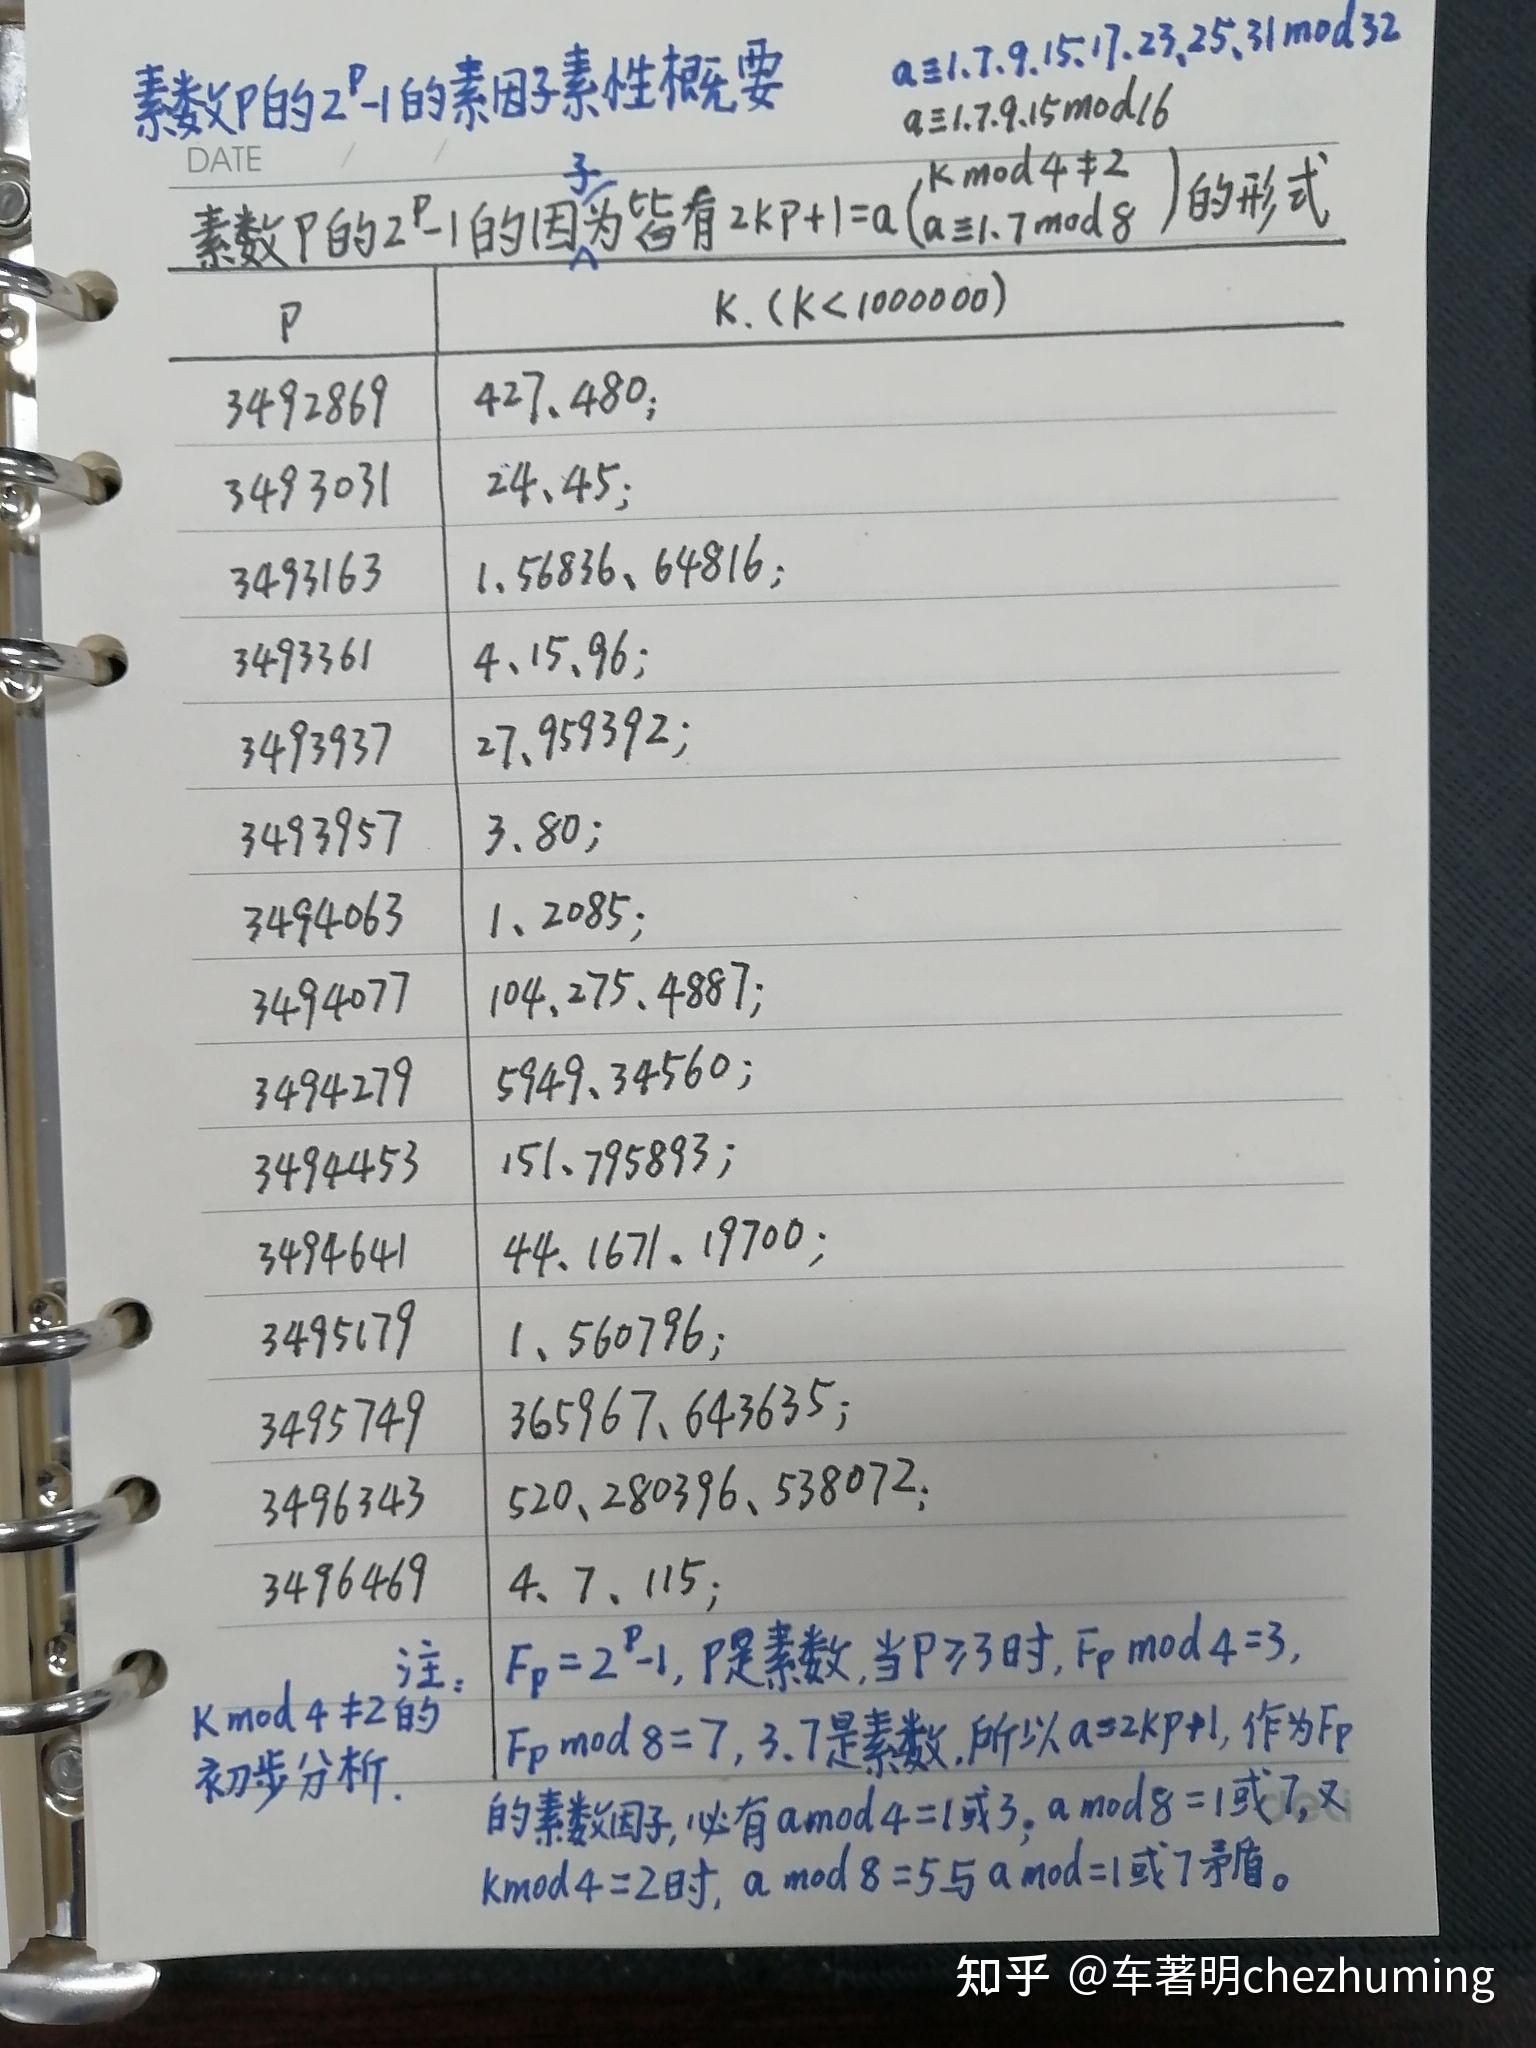 素数P的2^P-1的素因子素性概要
a≡1.7.9.15.17.23、25、31mod32
a≡1.7.9.15mod16
DATE / /
素数P的2^P-1的因子为皆有2KP+1=a(Kmod4≠2 a≡1.7mod8)的形式
P K.(K<1000000)
3492869 427、480;
3493031 24、45;
3493163 1、56836、64816;
3493361 4、15、96;
3493937 27、959392;
3493957 3、80;
3494063 1、2085;
3494077 104、275、4887;
3494279 5949、34560;
3494453 151、795893;
3494641 44、1671、19700;
3495179 1、560796;
3495749 365967、643635;
3496343 520、280396、538072;
3496469 4、7、115;
注: Fp=2^P-1,P是素数,当P≥3时,Fp mod4=3,
Kmod4≠2的
初步分析.
Fp mod8=7,3.7是素数,所以a=2KP+1,作为Fp
的素数因子,必有amod4=1或3;amod8=1或7,又
Kmod4=2时,a mod8=5与a mod=1或7矛盾。
知乎 @车著明chezhuming